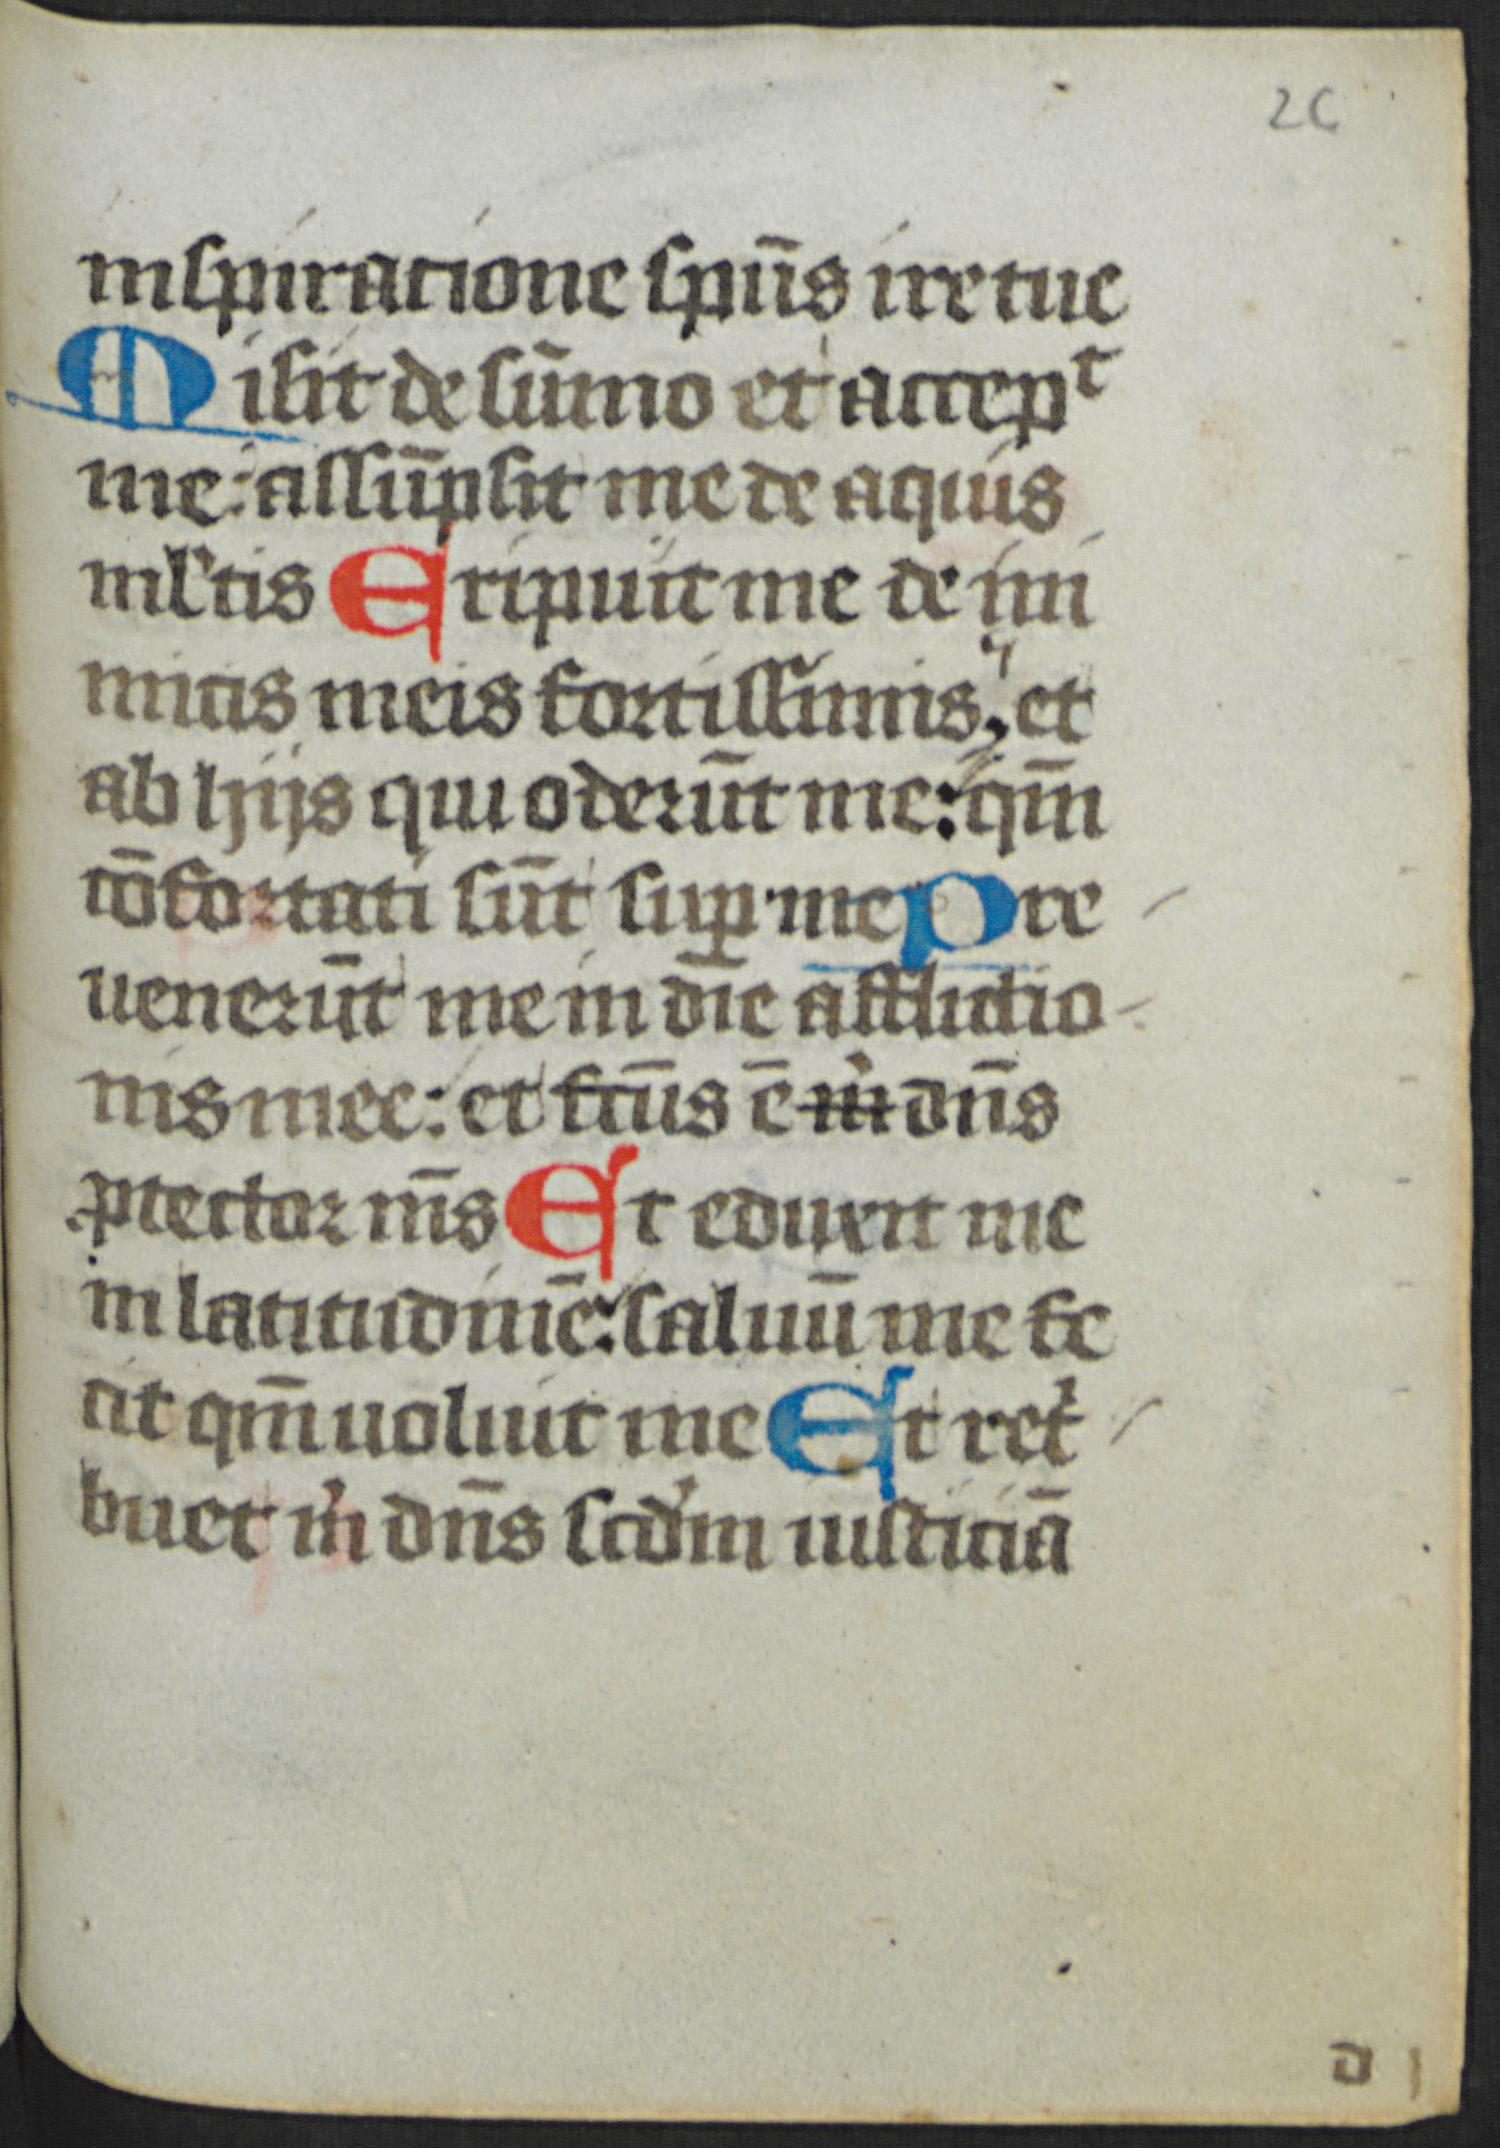 26
inspiracione spūs ire tue
Misit de sūmo et accepͭ
me: assūpsit me de aquis
ml'tis Eripuit me de ini
micis meis fortissimis, et
ab hijs qui oderūt me: qm̄
cōfortati sūt sup me Pre
uenerūt me in die afflictio
nis mee: et fc̄us ē m̊ dn̄s
ptector m̄s Et eduxit me
in latitudinē: saluū me fe
cit qm̄ uoluit me Et ret̉
buet m̊ dn̄s scd̉m iusticiā
d |